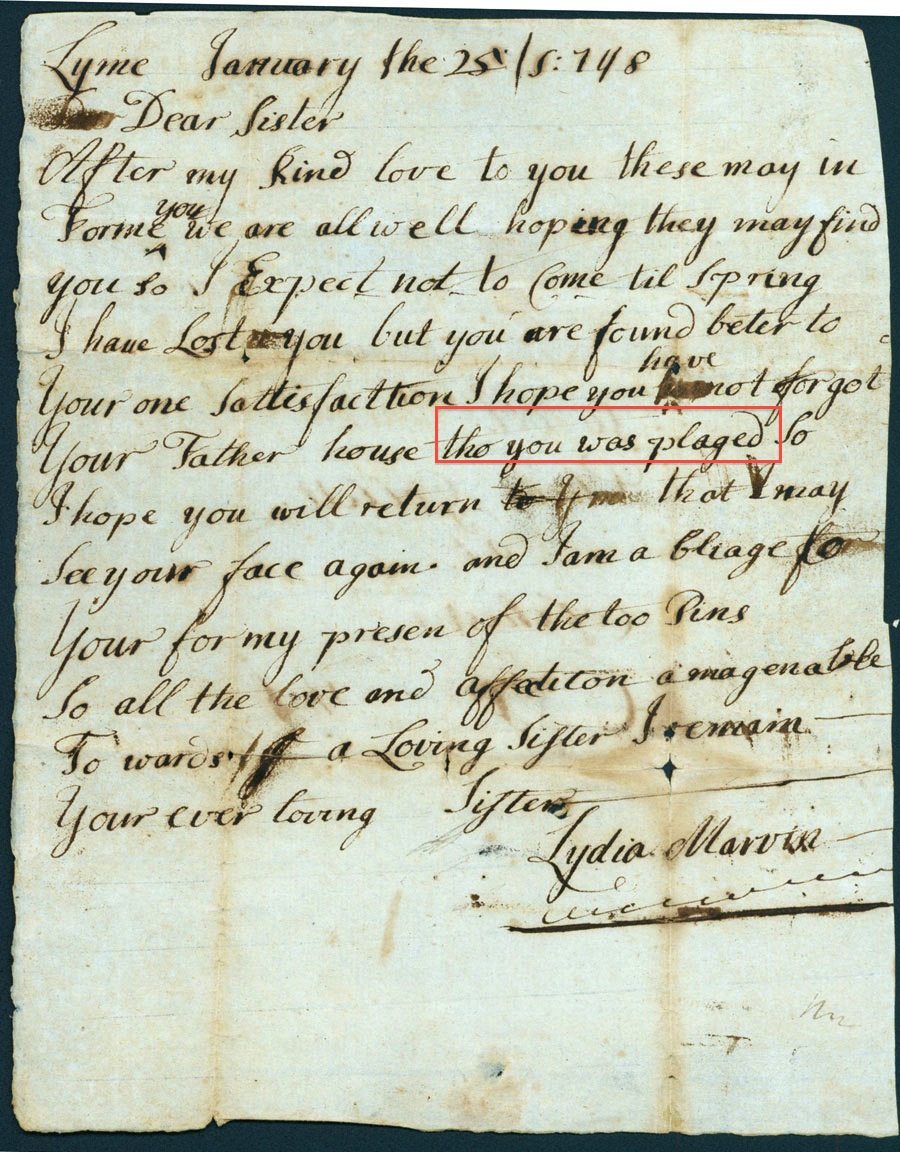 Lyme January the 25 / S: 748
Dear Sister
After my kind love to you these may in
Forme you we are all well hoping they may find
you so I Expect not to Come til Spring
I have Lost you but you are found beter to
Your one sattisfacttion I hope you have not forgot
Your Father house tho you was plaged so
I hope you will return to that I may
See your face again. and I am a bliage to
Your for my presen of the too Pins
So all the love and affection a magenable
To wards a Loving Sister I remain
Your ever loving Sister
Lydia Marvin